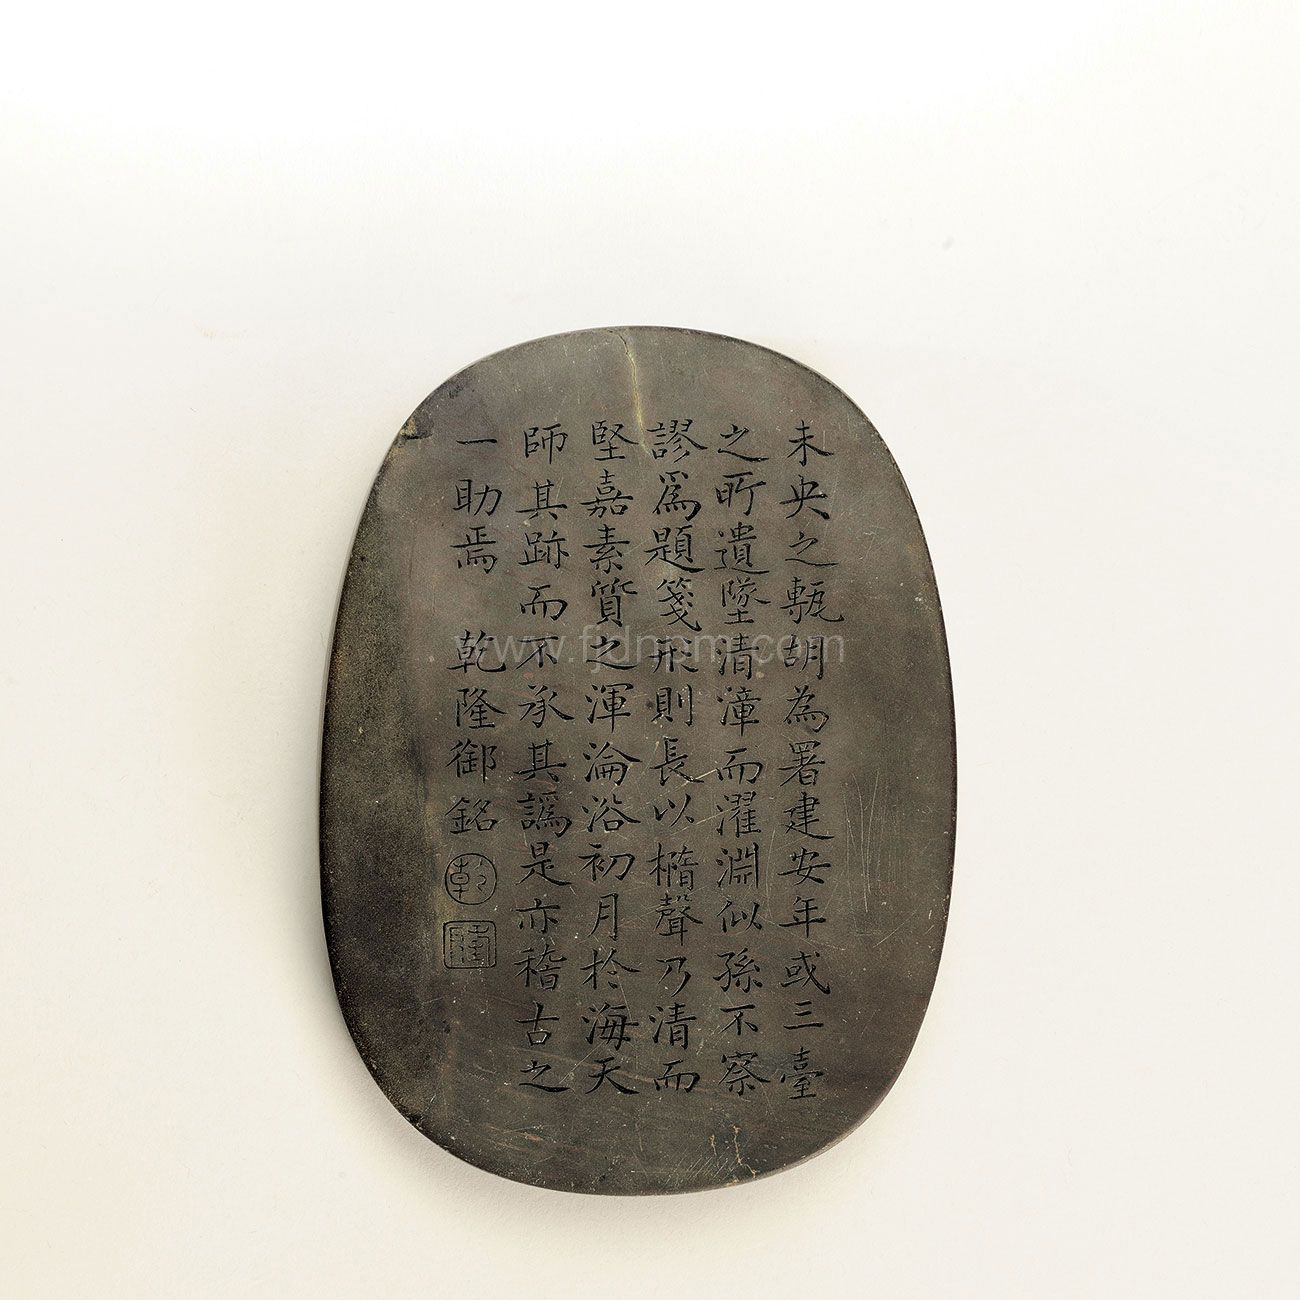 未央之甎胡為署建安年或三臺
之所遺墜清漳而濯淵似孫不察
謬爲題箋形則長以橢聲乃清而
堅嘉素質之渾淪浴初月於海天
師其跡而不承其譌是亦稽古之
一助焉 乾隆御銘
乾
隆
www.fjdnpm.com